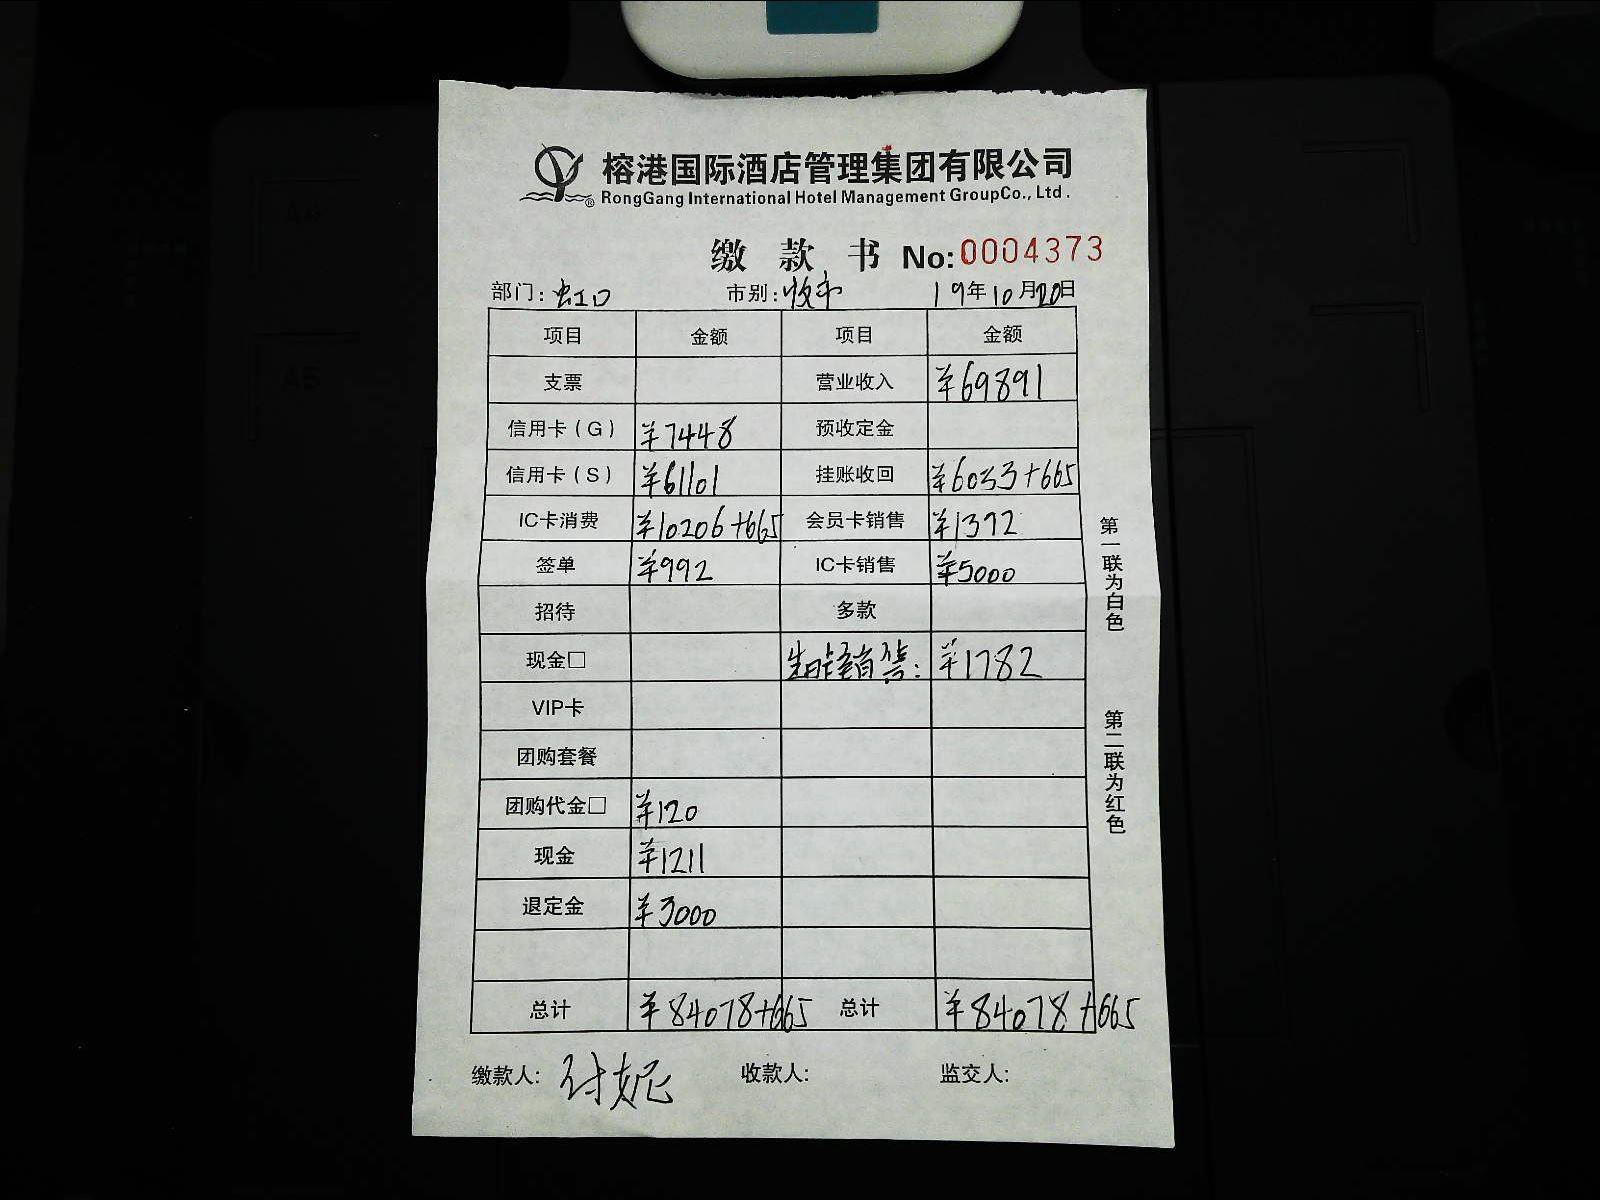 榕港国际酒店管理集团有限公司
®RongGang International Hotel Management GroupCo., Ltd.
缴 款 书 No:0004373
部门: 虹口 市别: 收市 19年10月20日
项目 金额 项目 金额
支票 营业收入 ¥69891
信用卡(G) ¥7448 预收定金
信用卡(S) ¥61101 挂账收回 ¥6033+665
IC卡消费 ¥10206+665 会员卡销售 ¥1372
签单 ¥992 IC卡销售 ¥5000
招待 多款
现金□ ¥1782
VIP卡
团购套餐
团购代金□ ¥120
现金 ¥1211
退定金 ¥3000
总计 ¥84078+665 总计 ¥84078+665
缴款人: 付妮 收款人: 监交人:
第一联为白色
第二联为红色
A4
A5